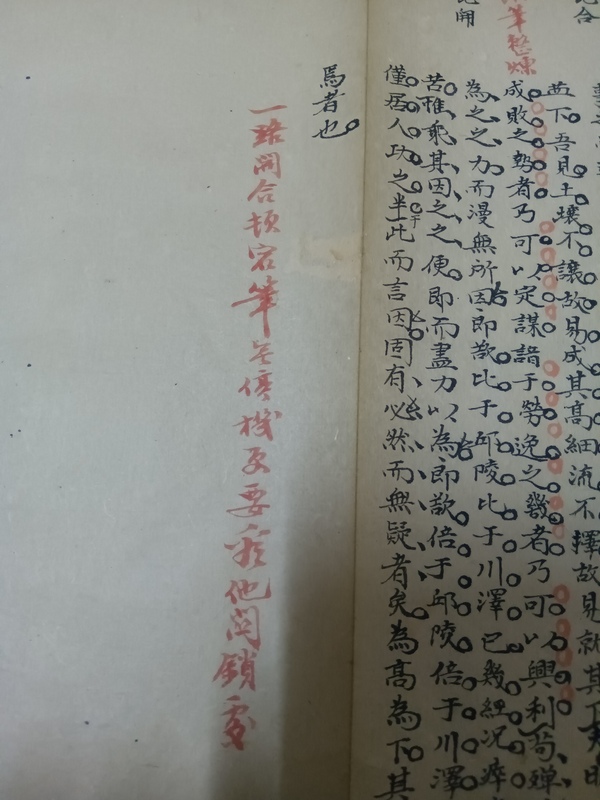 比合
比開
筆整煉
並下吾見土壤不讓故易成其高細流不擇故易就其下夫
成敗之勢者乃可以定謀諳于勞逸之幾者乃可以興利苟殫
為之之力而漫無所因即欲比于邱陵比于川澤已幾經況瘁
苦惟乘其因之之便即而盡力以為即欲倍于邱陵倍于川澤
僅居人功之半此而言因固有必然而無疑者矣為高為下其
焉者也
一路開合頓宕筆無停機更要看他關鎖處